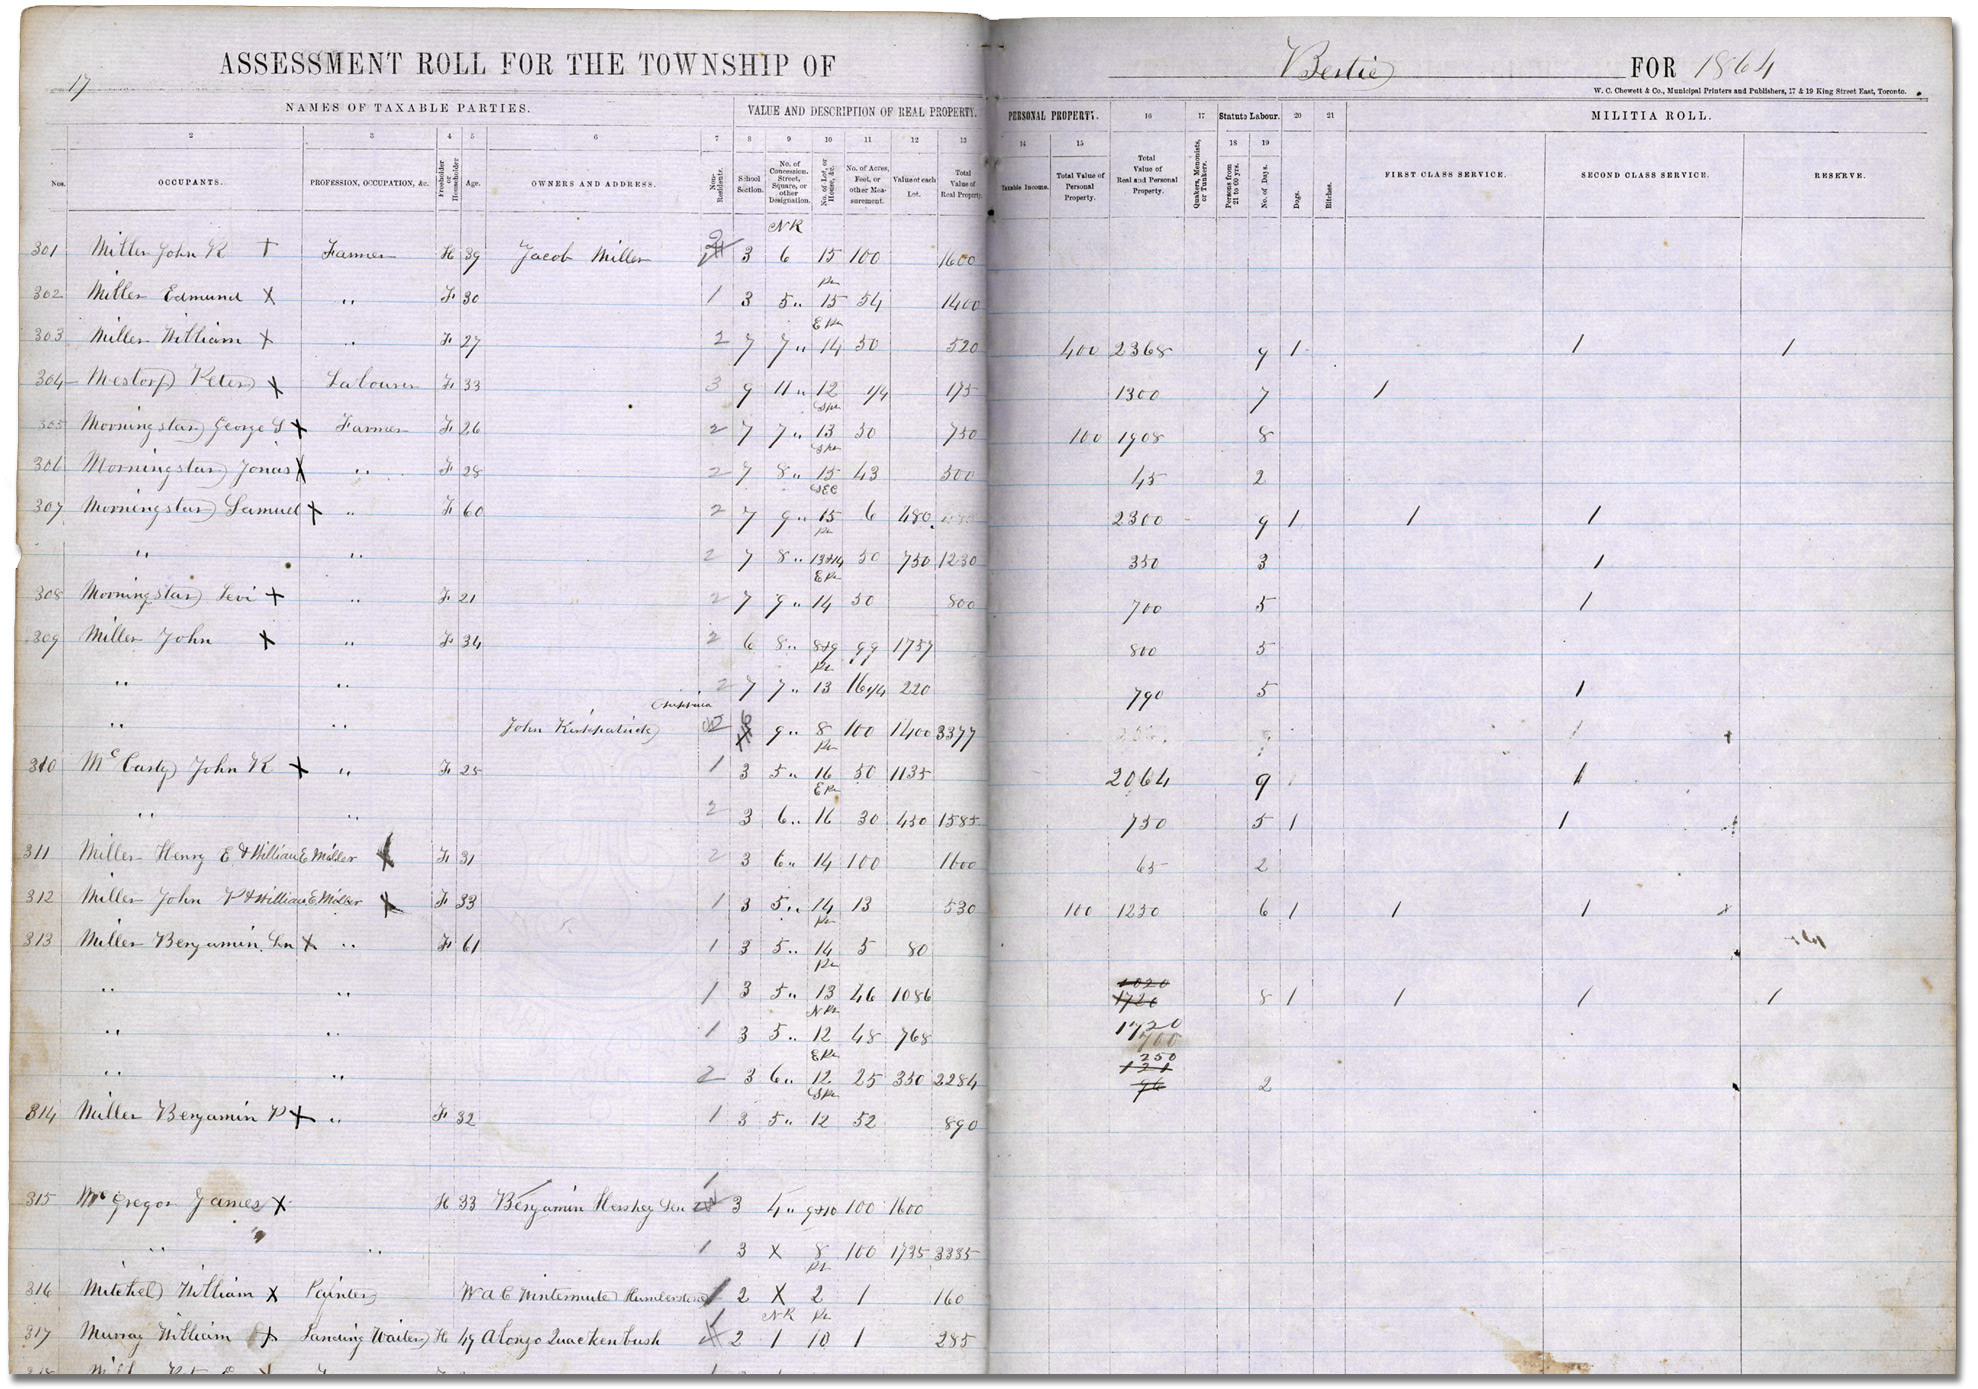 17
ASSESSMENT ROLL FOR THE TOWNSHIP OF Bertie FOR 1864
W. C. Chewett & Co., Municipal Printers and Publishers, 17 & 19 King Street East, Toronto.
NAMES OF TAXABLE PARTIES. VALUE AND DESCRIPTION OF REAL PROPERTY. PERSONAL PROPERTY. 16 17 Statute Labour. 20 21 MILITIA ROLL.
2 3 4 5 6 7 8 9 10 11 12 13 14 15 18 19
Nos. OCCUPANTS. PROFESSION, OCCUPATION, &c. Freeholder or Householder Age. OWNERS AND ADDRESS. Non-Residents. School Section. No. of Concession. Street, Square, or other Designation. No. of Lot, or House, &c. No. of Acres, Feet, or other Measurement. Value of each Lot. Total Value of Real Property. Taxable Income. Total Value of Personal Property. Total Value of Real and Personal Property. Quakers, Menonists, or Tunkers. Persons from 21 to 60 yrs. No. of Days. Dogs. Bitches. FIRST CLASS SERVICE. SECOND CLASS SERVICE. RESERVE.
NR
301 Miller John R Farmer H 39 Jacob Miller 3 6 15 100 1600
302 Miller Edmund X " F 30 1 3 5 " 15 54 1400
303 Miller William X " F 27 2 7 7 " 14 50 520 400 2368 9 1 1 1
304 Peter X Labourer F 33 3 9 11 " 12 1/4 175 1300 7 1
305 Morningstar George S X Farmer F 26 2 7 7 " 13 50 750 100 1908 8
306 Morningstar Jonas X " F 28 2 7 8 " 15 43 500 45 2
307 Morningstar Samuel X " F 60 2 7 9 " 15 6 480 2300 9 1 1 1
" " 2 7 8 " 13&14 50 750 1230 350 3 1
308 Morningstar Levi X " F 21 2 7 9 " 14 50 800 700 5 1
309 Miller John X " F 34 2 6 8 " 8&9 99 1757 800 5
" " 2 7 7 " 13 16 1/4 220 790 5 1
" " John Kirkpatrick Chippawa 6 9 " 8 100 1400 3377
310 McCarty John K X " F 25 1 3 5 " 16 50 1135 2064 9 1
" " 2 3 6 " 16 30 450 1585 750 5 1 1
311 Miller Henry E & William E Miller X F 31 2 3 6 " 14 100 1600 65 2
312 Miller John P & William E Miller X F 33 1 3 5 " 14 13 530 100 1250 6 1 1 1
313 Miller Benjamin Sen X " F 61 1 3 5 " 14 5 80
" " 1 3 5 " 13 46 1086 1720 8 1 1 1 1
" " 1 3 5 " 12 48 768 1720
700
" " 2 3 6 " 12 25 350 2284 250 2
314 Miller Benjamin P X " F 32 1 3 5 " 12 52 890
315 McGregor James X H 33 Benjamin Hershey Sen 1 3 4 " 9&10 100 1600
" " 1 3 X 8 100 1735 3335
316 Mitchel William X Painter W a C Wintermute Humberstone 1 2 X 2 1 160
NR
317 Murray William X Landing Waiter H 49 Alonzo Quackenbush 1 2 1 10 1 285